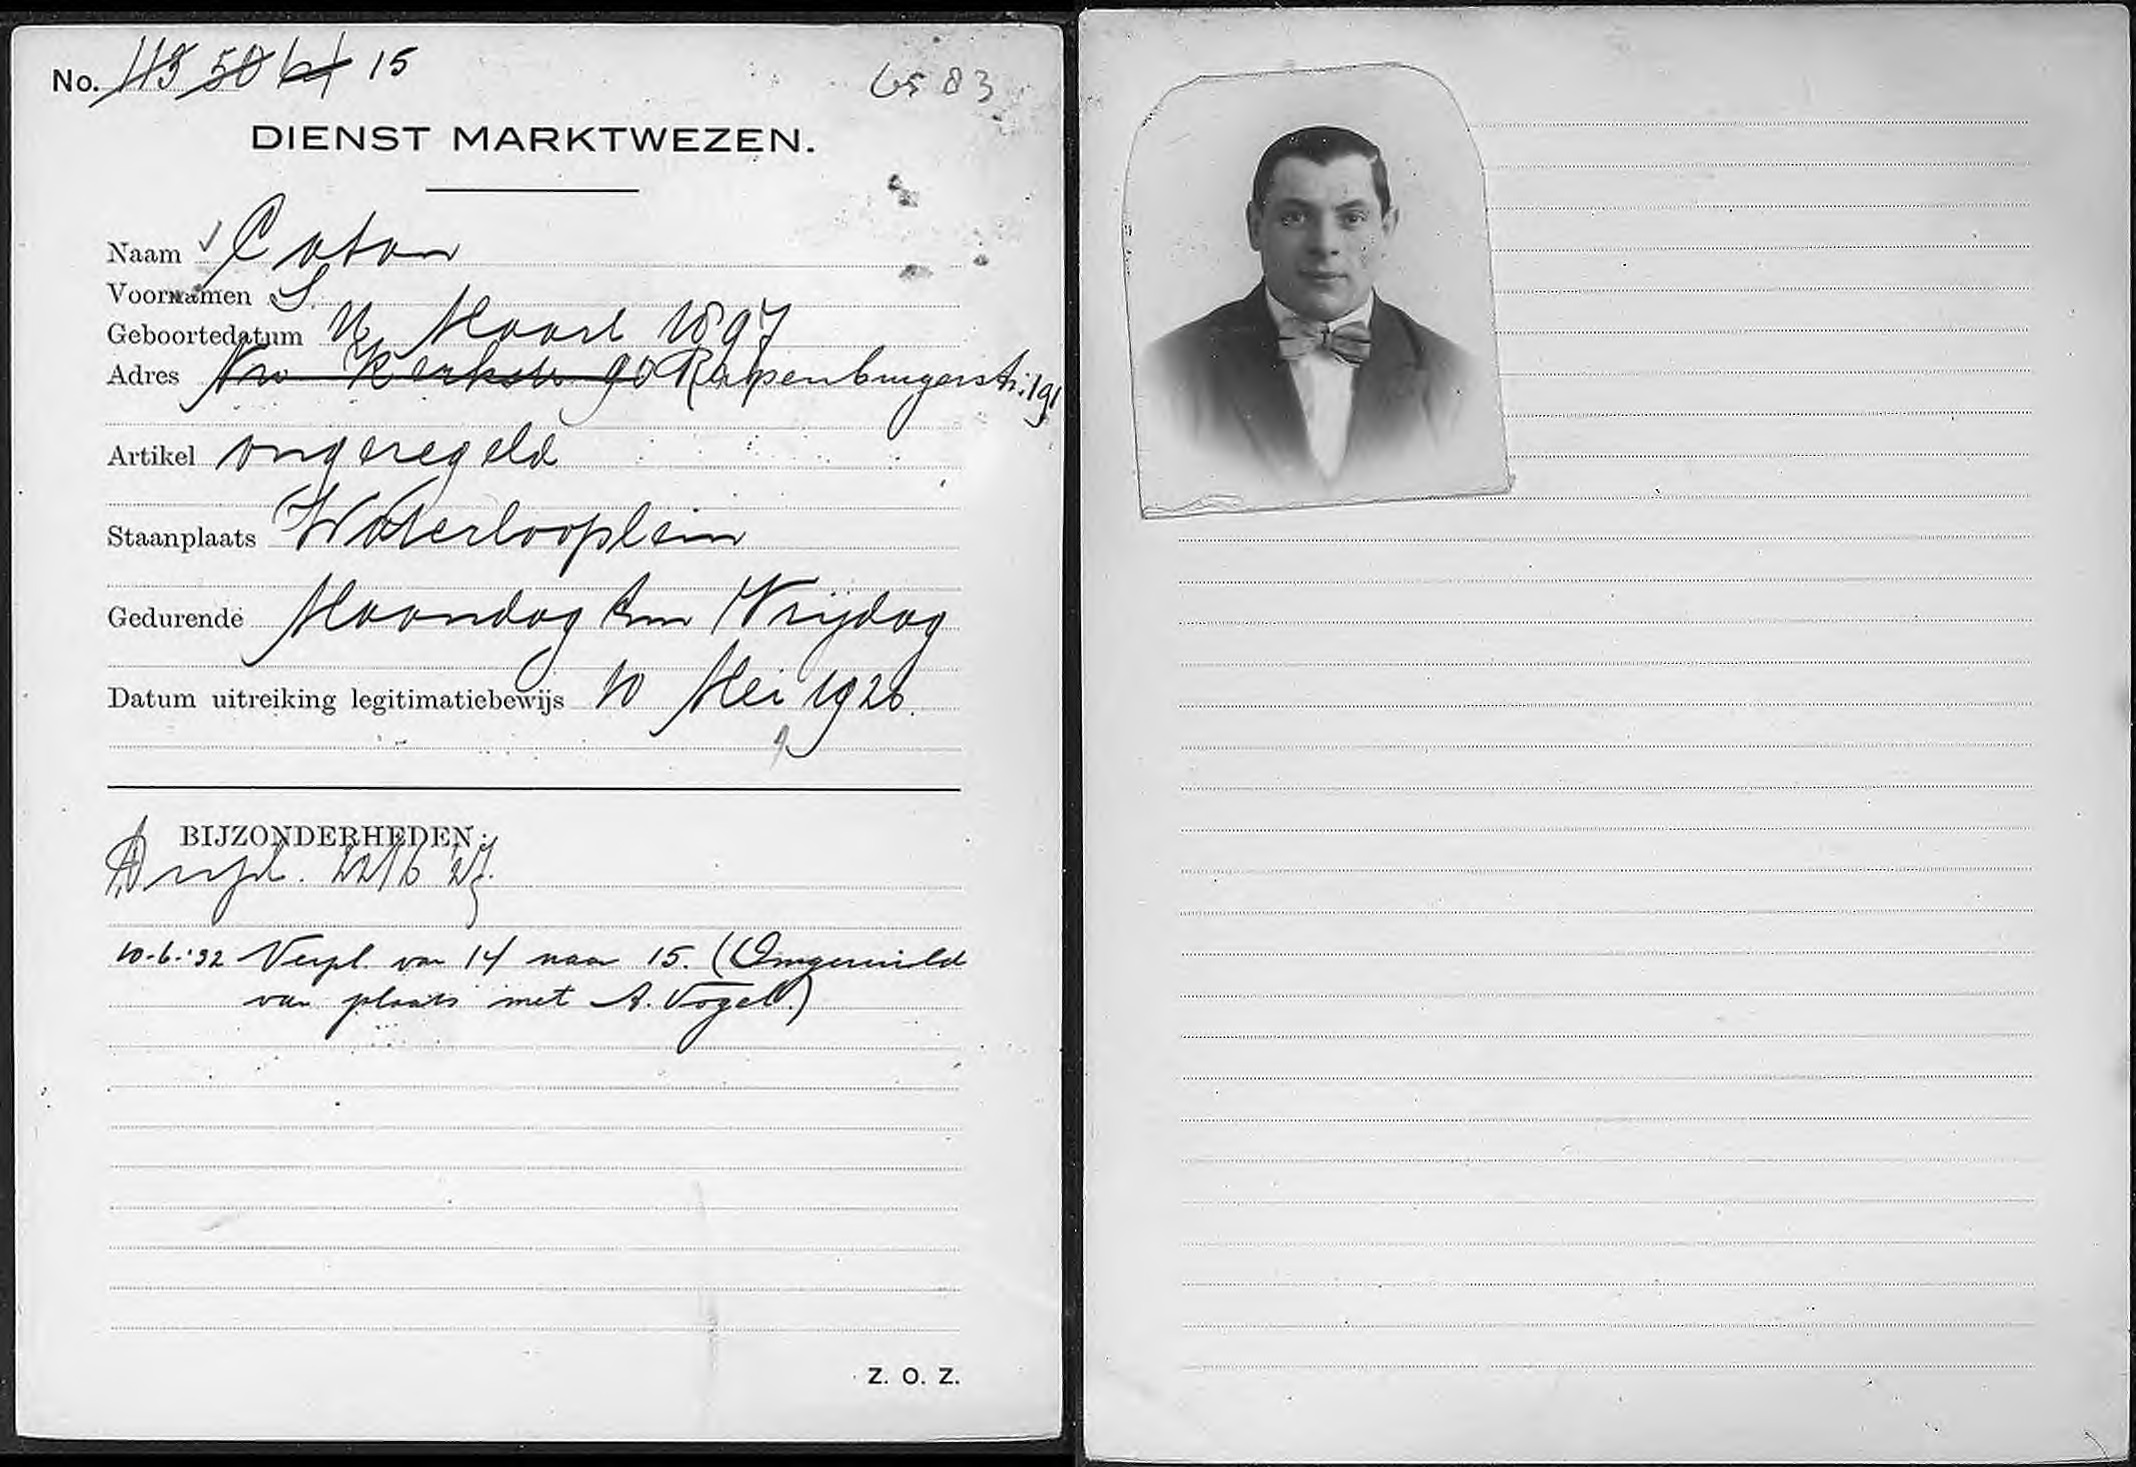 No. 115 50 64 15
6583
DIENST MARKTWEZEN.
Naam Coton
Voornamen S.
Geboortedatum Maart 1897
Adres Nw Kerkstr 90 Rapenburgerstr: 191
Artikel ongeregeld
Staanplaats Waterlooplein
Gedurende Maandag tm Vrijdag
Datum uitreiking legitimatiebewijs 10 Mei 1926.
BIJZONDERHEDEN:
10-6-'32 Verpl. van 14 naar 15. (Omgeruild
van plaats met A. Vogel.)
Z. O. Z.